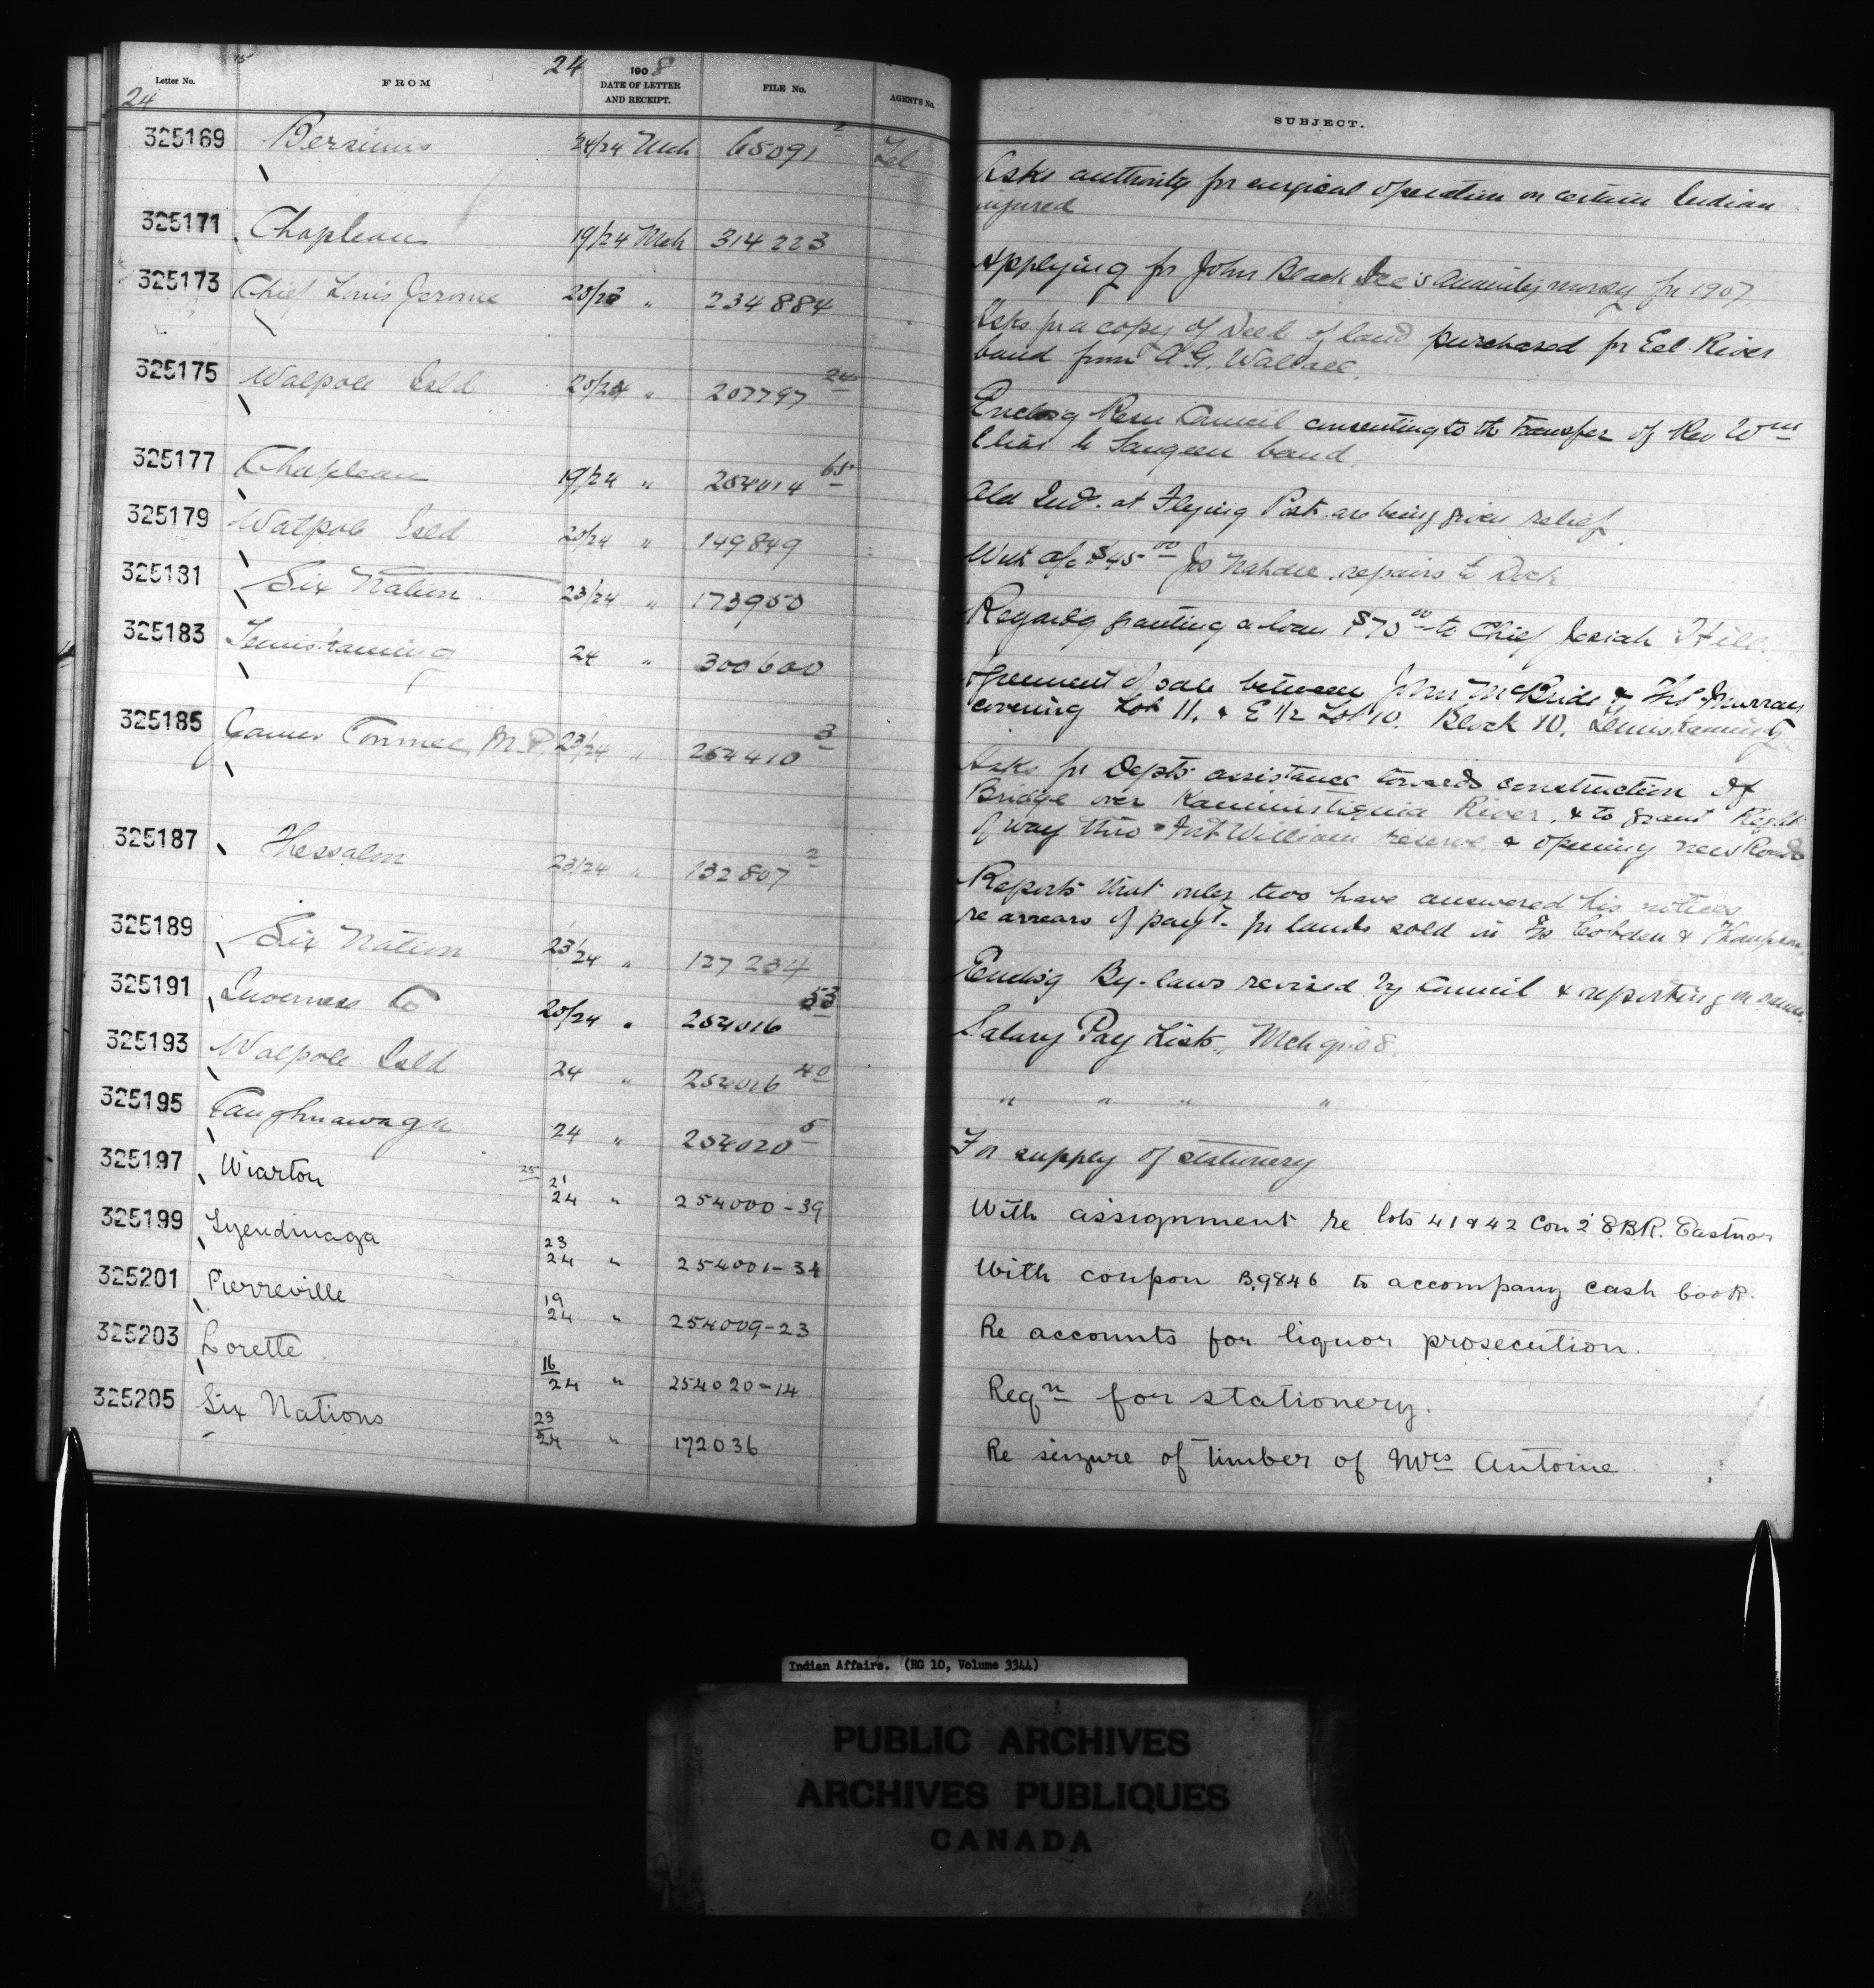 24 1908
Letter No. FROM DATE OF LETTER AND RECEIPT. FILE No. AGENTS No. SUBJECT.
24
325169 Bersimis 24/24 Mch 65091 2 Tel Asks authority for surgical operation on certain Indian
injured
325171 Chapleau 19/24 Mch 314223 Applying for John Black Ice's annuity money for 1907.
325173 Chief Louis Jerome 20/23 " 234884 Asks for a copy of Deed of land purchased for Eel River
band from A.G. Wallace.
325175 Walpole Isld 20/24 " 207797 24 Enclosg Resn Council consenting to the transfer of Rev Wm
Elias to Saugeen band.
325177 Chapleau 19/24 " 254014 65 Old Inds. at Flying Post are being given relief.
325179 Walpole Isld 20/24 " 149849 With a/c $45.00 Jos Nahdee repairs to Dock
325181 Six Nation 23/24 " 173950 Regardg granting a loan $70.00 to Chief Josiah Hill.
325183 Temiskaming 24 " 300600 Agreement of sale between John McBride & Murray
covering Lot 11. & E 1/2 Lot 10. Block 10. Temiskaming
325185 James Conmee M.P 23/24 " 254410 3 Asks for Depts assistance towards construction of
Bridge over Kaministiquia River, & to grant Right
of way thro Fort William reserve & opening new Roads
325187 Thessalon 23/24 " 132807 2 Reports that only two have answered his notices
re arrears of payt. for lands sold in Cobden & Thompson
325189 Six Nation 23/24 " 127234 Enclosg By-laws revised by Council & reporting on same.
325191 Inverness Co 20/24 " 254016 53 Salary Pay Lists, Mch qr 08.
325193 Walpole Isld 24 " 254016 40 " " " "
325195 Caughnawaga 24 " 254020 5 For supply of stationery
325197 Wiarton 25 21/24 " 254000-39 With assignment re lots 41 & 42 Con 2 EBR. Eastnor
325199 Tyendinaga 23/24 " 254001-34 With coupon B9846 to accompany cash book.
325201 Pierreville 19/24 " 254009-23 Re accounts for liquor prosecution.
325203 Lorette 16/24 " 254020-14 Reqn for stationery.
325205 Six Nations 23/24 " 172036 Re seizure of timber of Mrs Antoine
Indian Affairs. (RG 10, Volume 3344)
PUBLIC ARCHIVES
ARCHIVES PUBLIQUES
CANADA